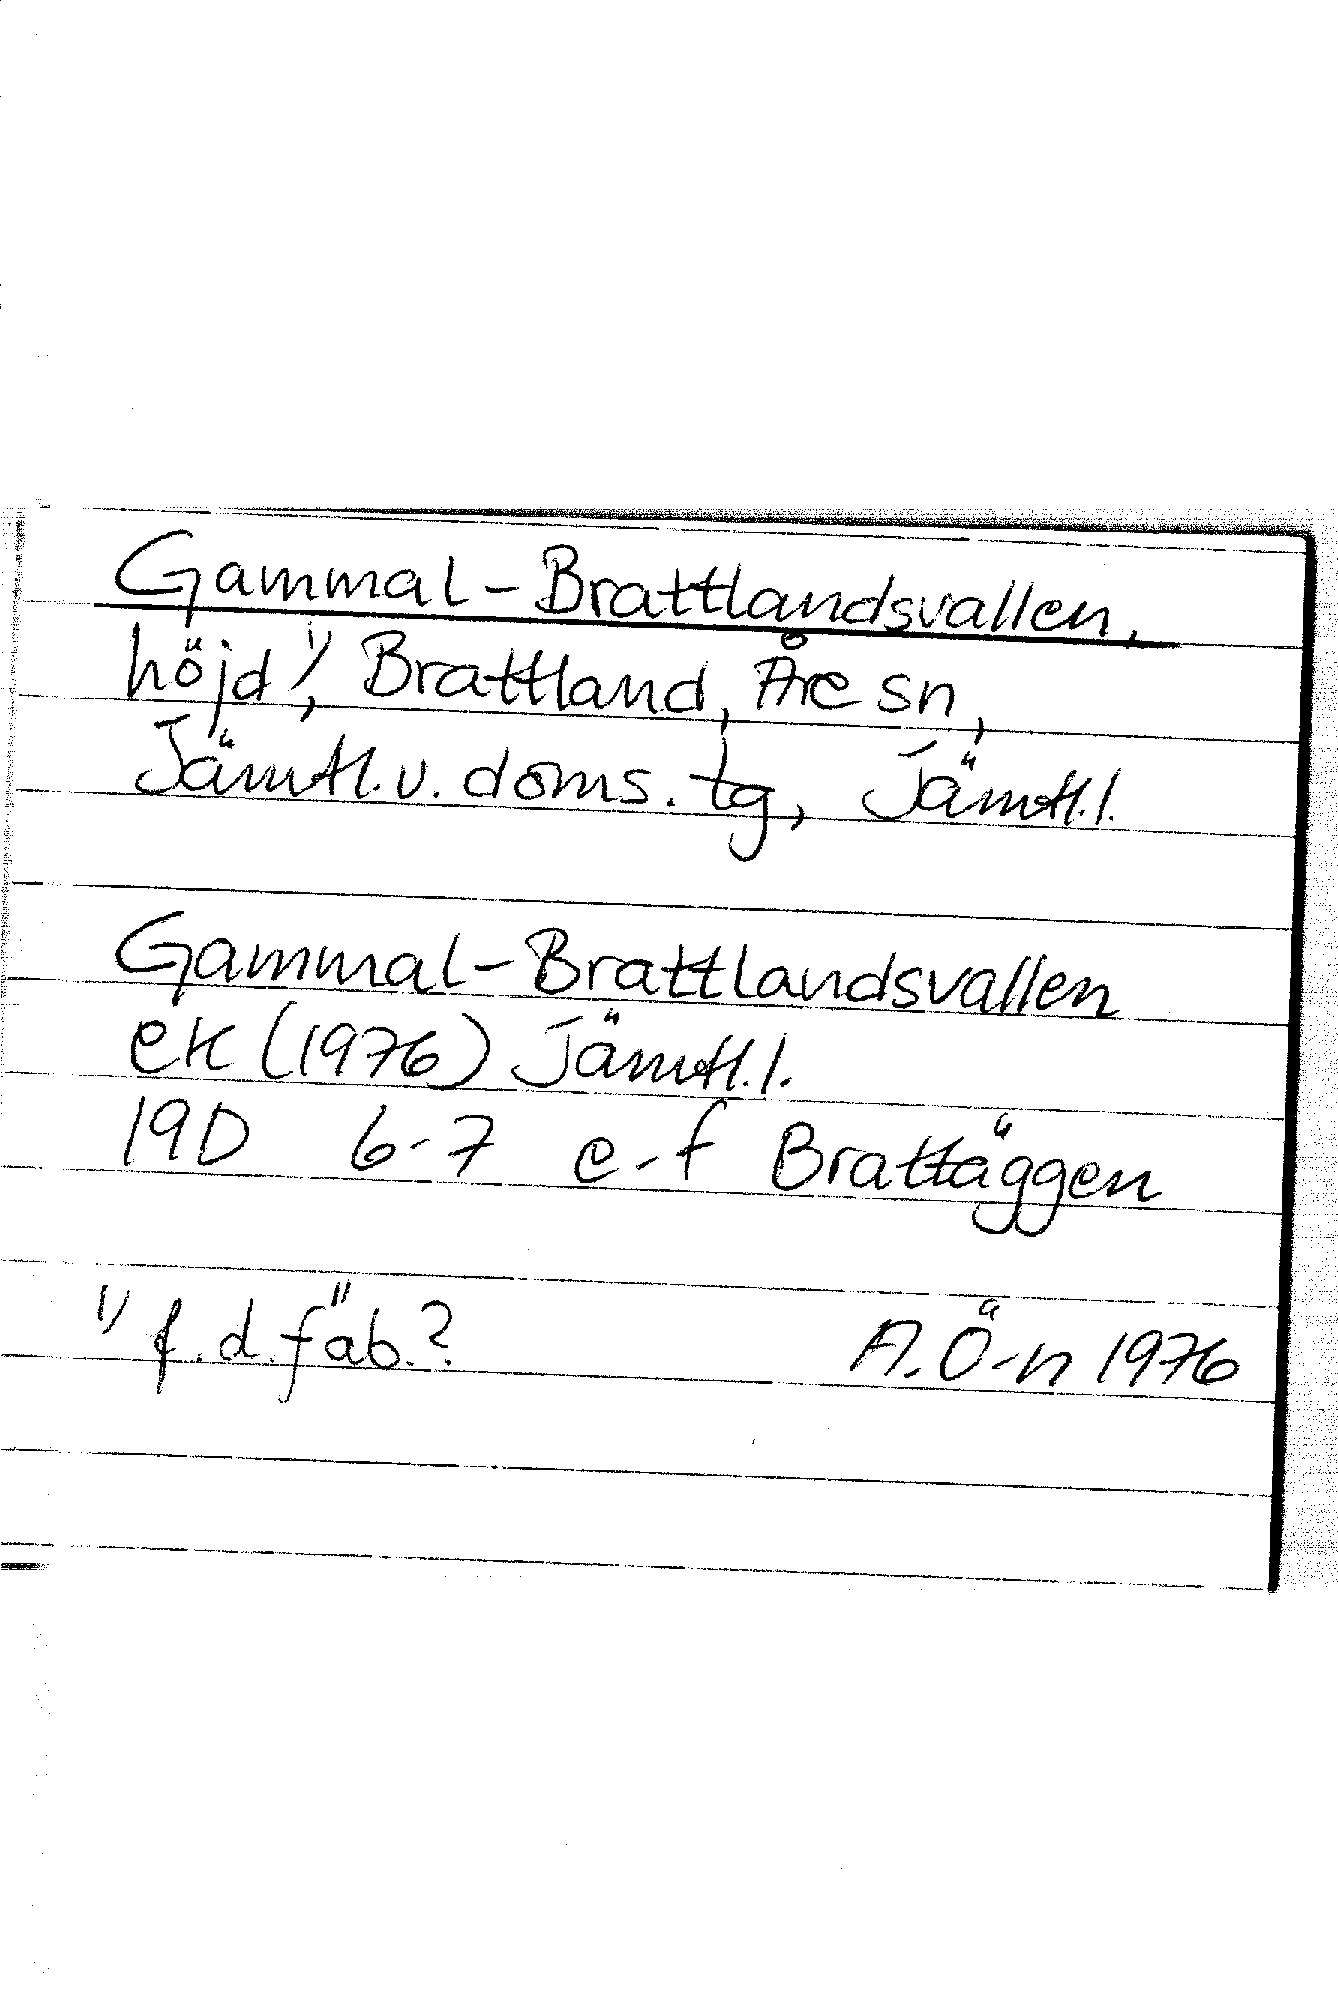 Gammal-Brattlandsvallen,
höjd 1), Brattland, Åre sn,
Jämtl. v. doms. tg, Jämtl. l.
Gammal-Brattlandsvallen
ek (1976) Jämtl. l.
19D 6-7 e-f Brattäggen
1) f. d. fäb.? A. Ö-n 1976